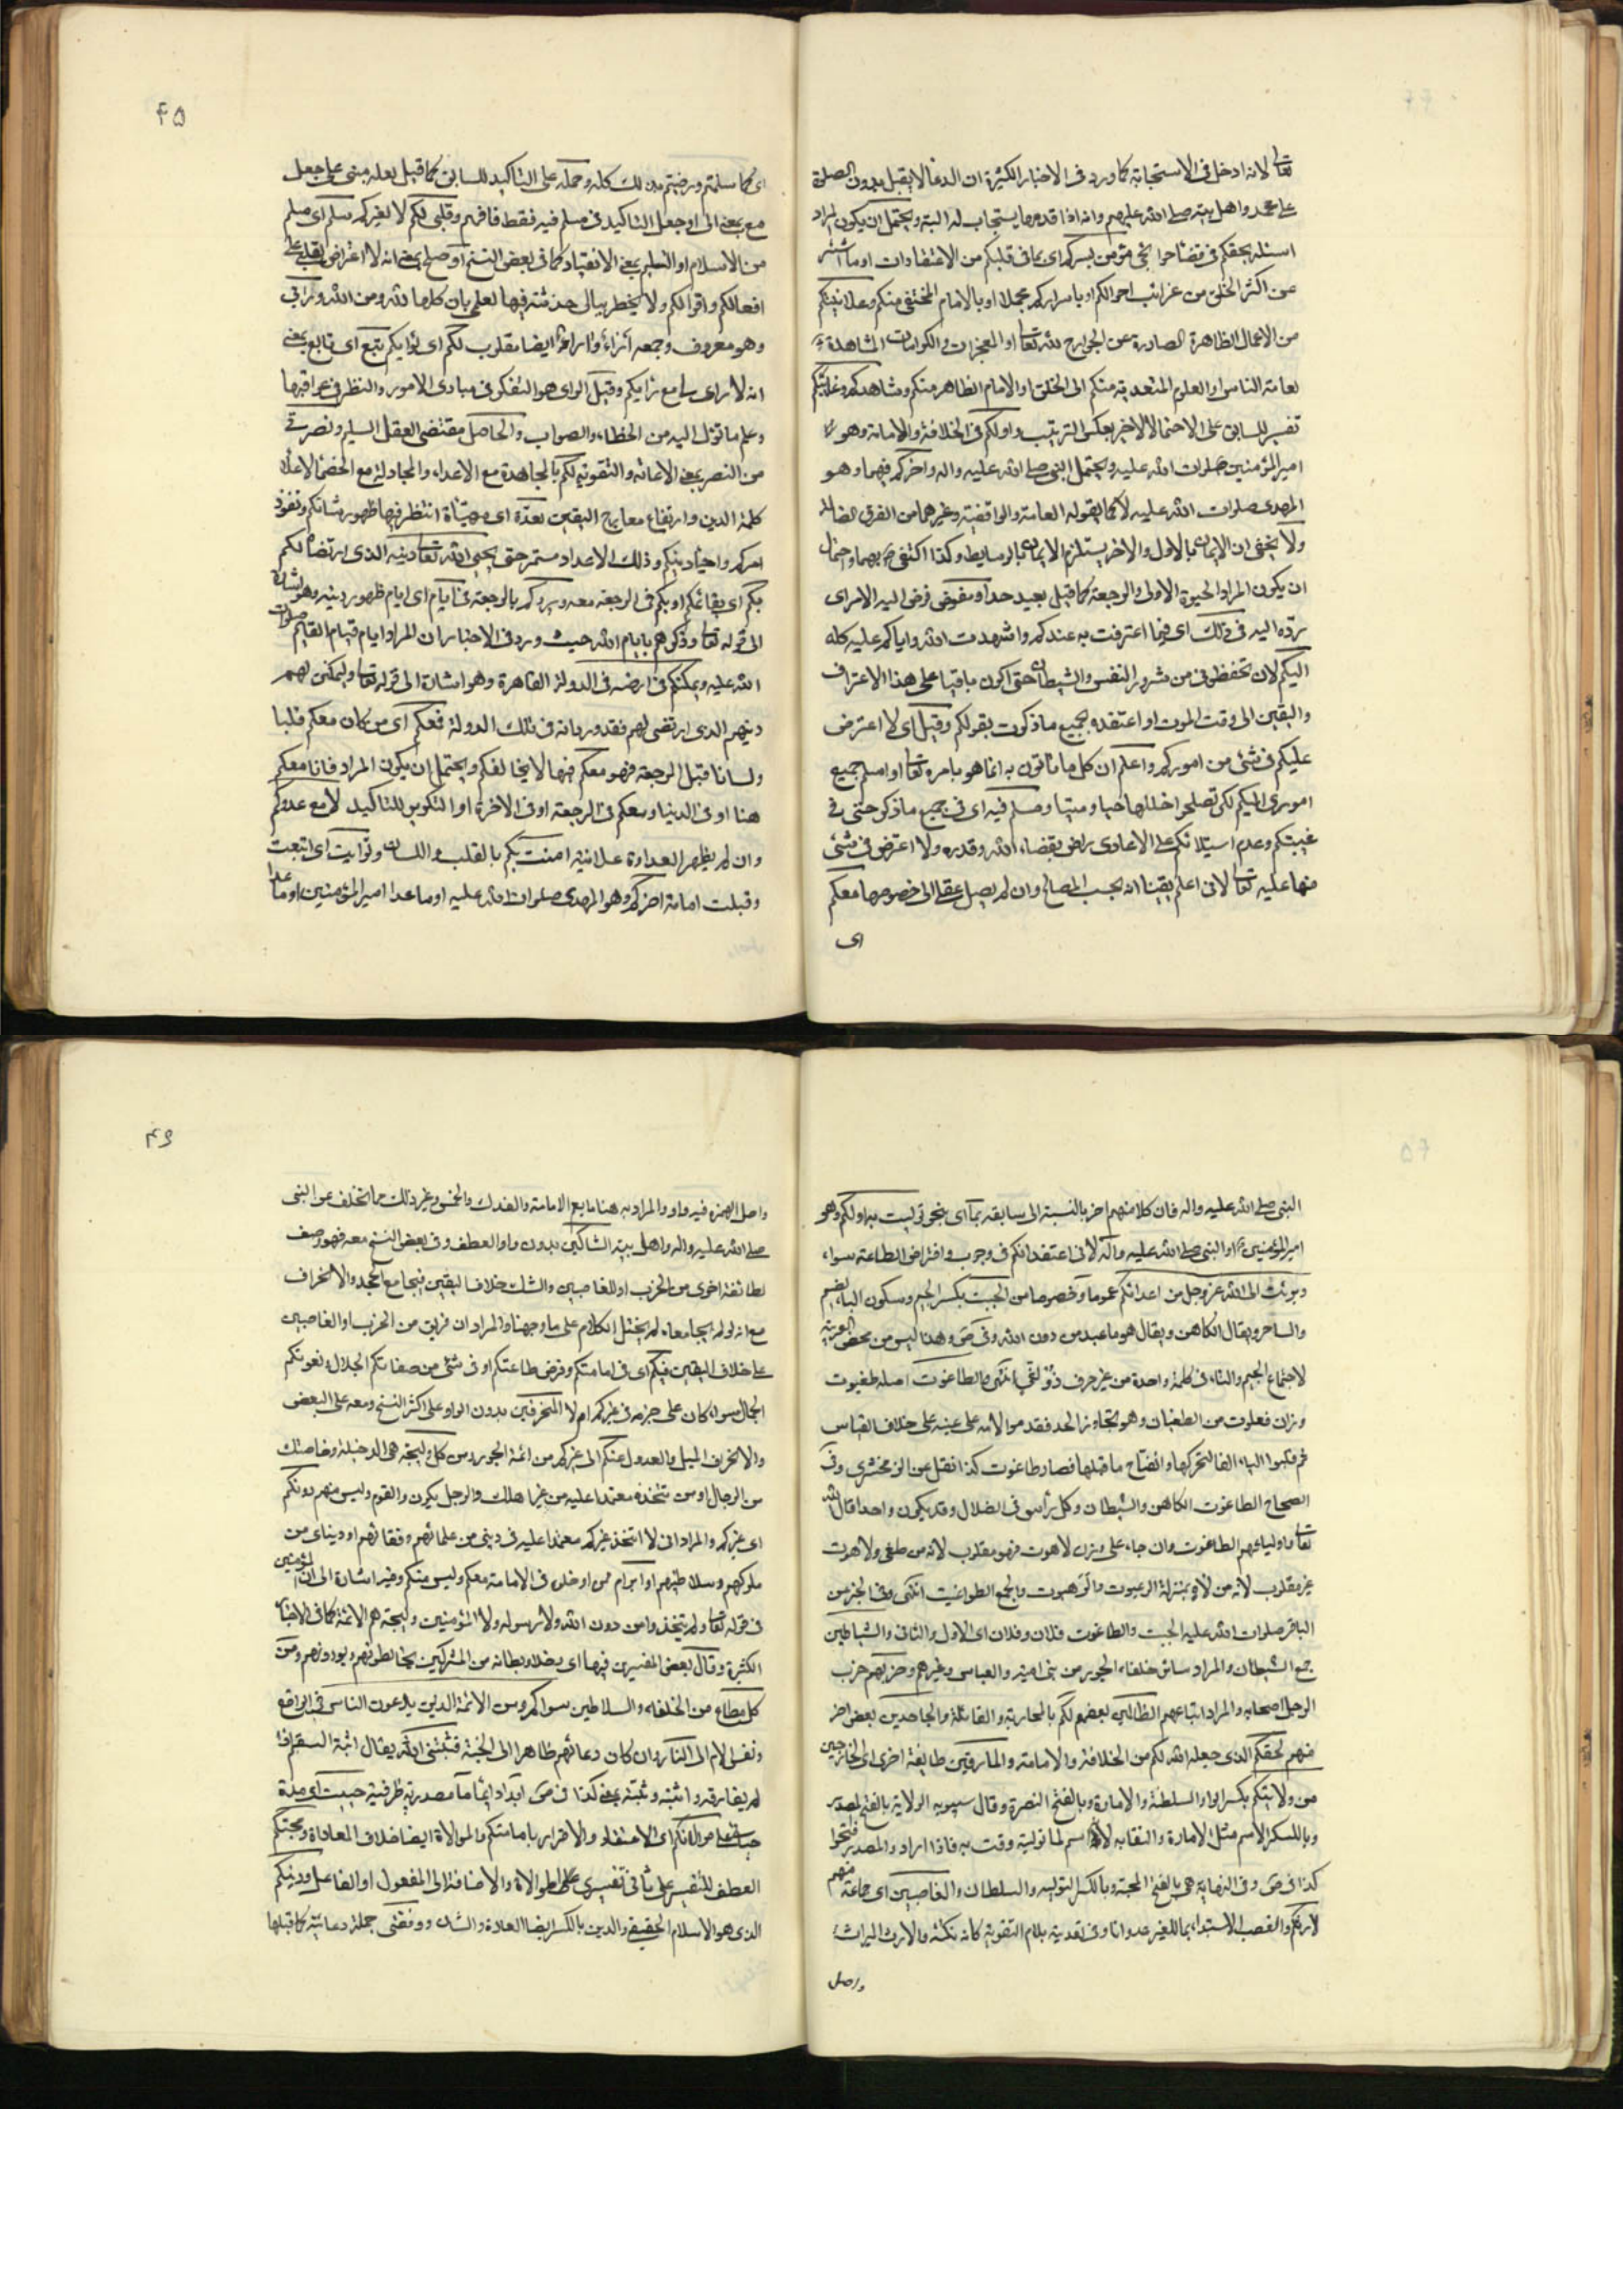 تعالى لانه ادخل فى الاستجابة كما ورد فى الاخبار الكثيرة ان الدعاء لا يقبل بدون الصلوة
على محمد واهل بيته صلى الله عليهم وانه اذا قدمها يستجاب له البتة ويحتمل ان يكون المراد
اسئله بحقكم فى قضاء حوائجى مؤمن بسركم اى بما فى قلبكم من الاعتقادات او ما استتر
عن اكثر الخلق من غرائب احوالكم او باسراركم مجملا او بالامام المختفى منكم وعلانيتكم
من الاعمال الظاهرة الصادرة عن الجوارح لله تعالى او المعجزات والكرامات المشاهدة
لعامة الناس او العلوم المتعدية منكم الى الخلق او الامام الظاهر منكم وشاهدكم وغائبكم
تفسير للسابق على الاحتمال الاخير بعكس الترتيب واولكم فى الخلافة والامامة وهو
امير المؤمنين صلوات الله عليه ويحتمل النبى صلى الله عليه واله واخركم فيهما وهو
المهدى صلوات الله عليه لا كما يقوله العامة والواقفية وغيرهما من الفرق الضالة
ولا يخفى ان الايمان بالاول والاخر يستلزم الايمان بالوسايط وكذا اكتفى بهما واحتمال
ان يكون المراد الحيوة الاولى والرجعة كما قيل بعيد جدا ومفوض فوض اليه الامر اى
رده اليه فى ذلك اى فيما اعترفت به عندكم واشهدت الله واياكم عليه كله
اليكم لان تحفظونى من شرور النفس والشيطان حتى اكون باقيا على هذا الاعتراف
واليقين الى وقت الموت او اعتقده بجميع ما ذكرت بقولكم وقيل اى لا اعترض
عليكم فى شئ من اموركم واعلم ان كل ما تاتون به انما هو بامره تعالى او اسلم جميع
امورى اليكم لكى تصلحوا خللها حيا وميتا ومسلم فيه اى فى جميع ما ذكر حتى فى
غيبتكم وعدم استيلائكم على الاعادى راض بقضاء الله وقدره ولا اعترض فى شئ
منها عليه تعالى لانى اعلم يقينا انه بحسب المصالح وان لم يصل عقلى الى خصوصها معكم
اى
۴۵
اى كما سلمتم ورضيتم بذلك كله وحمله على التاكيد للسابق كما قيل لعله مبنى على جعل
مع بمعنى الى او جعل التاكيد فى مسلم فيه فقط فافهم وقلبى لكم لا لغيركم سلم اى مسلم
من الاسلام او التسليم بمعنى الانقياد كما فى بعض النسخ او صلح بمعنى انه لا اعتراض لقلبى على
افعالكم واقوالكم ولا يخطر ببالى خدشة فيها لعلمى بان كلها لله ومن الله ورايى
وهو معروف وجمعه اراء وءاراء ايضا مقلوب لكم اى لرايكم تبع اى تابع بمعنى
انه لا راى لى مع رايكم وقيل الراى هو التفكر فى مبادى الامور والنظر فى عواقبها
وعلم ما تؤل اليه من الخطاء والصواب والحاصل مقتضى العقل السليم ونصرتى
من النصر بمعنى الاعانة والتقوية لكم بالمجاهدة مع الاعداء والمجادلة مع الخصماء لاعلاء
كلمة الدين وارتفاع معارج اليقين معدة اى مهيئاة انتظر فيها ظهور شانكم ونفوذ
امركم واحياء دينكم وذلك الاعداد مستمر حتى يحيى الله تعالى دينه الذى ارتضاه لكم
بكم اى ببقائكم او بكم فى الرجعة معه ويردكم بالرجعة فى ايامه اى ايام ظهور دينه وهو اشارة
الى قوله تعالى وذكرهم بايام الله حيث ورد فى الاخبار ان المراد ايام قيام القايم صلوات
الله عليه ويمكنكم فى ارضه فى الدولة القاهرة وهو اشارة الى قوله تعالى وليمكنن لهم
دينهم الذى ارتضى لهم فقد ورد انه فى تلك الدولة فمعكم اى من كان معكم قلبا
ولسانا قبل الرجعة فهو معكم فيها لا يخالفكم ويحتمل ان يكون المراد فانا معكم
هنا او فى الدنيا ومعكم فى الرجعة او فى الاخرة او التكرير للتاكيد لا مع عدوكم
وان لم يظهر العداوة علانية امنت بكم بالقلب واللسان وتوليت اى اتبعت
وقبلت امامة اخركم وهو المهدى صلوات الله عليه او ما عدا امير المؤمنين او ما عدا
النبى صلى الله عليه واله فان كلا منهم اخر بالنسبة الى سابقه بما اى بنحو توليت به اولكم وهو
امير المؤمنين او النبى صلى الله عليه واله لانى اعتقد انكم فى وجوب وافتراض الطاعة سواء
وبرئت الى الله عز وجل من اعدائكم عموما وخصوصا من الجبت بكسر الجيم وسكون الباء الصنم
والساحر ويقال الكاهن ويقال هو ما عبد من دون الله وفى ص وهذا ليس من محض العربية
لاجتماع الجيم والتاء فى كلمة واحدة من غير حرف ذولقى انتهى والطاغوت اصله طغيوت
وزان فعلوت من الطغيان وهو تجاوز الحد فقدموا لامه على عينه على خلاف القياس
ثم قلبوا الياء الفا لتحركها وانفتاح ما قبلها فصار طاغوت كذا نقل عن الزمخشرى وفى
الصحاح الطاغوت الكاهن والشيطان وكل راس فى الضلال وقد يكون واحدا قال الله
تعالى اولياءهم الطاغوت وان جاء على وزن لاهوت فهو مقلوب لانه من طغى ولاهوت
غير مقلوب لانه من لاه بمنزلة الرغبوت والرهبوت والجمع الطواغيت انتهى وفى الخبر عن
الباقر صلوات الله عليه الجبت والطاغوت فلان وفلان اى الاول والثانى والشياطين
جمع الشيطان والمراد سائر خلفاء الجور من بنى امية والعباس وغيرهم وحزبهم حزب
الرجل اصحابه والمراد اتباعهم الظالمين بعضهم لكم بالمحاربة والمقاتلة والجاحدين بعض اخر
منهم لحقكم الذى جعله الله لكم من الخلافة والامامة والمارقين طايفة اخرى اى الخارجين
من ولايتكم بكسر الواو السلطنة والامارة وبالفتح النصرة وقال سيبويه الولاية بالفتح المصدر
وبالكسر الاسم مثل الامارة والنقابة لانه اسم لما توليته وقمت به فاذا ارادوا المصدر فتحوا
كذا فى ص وفى النهاية هى بالفتح المحبة وبالكسر التولية والسلطان والغاصبين اى جماعة منهم
لارثكم والغصب الاستبداد بما للغير عدوانا وفى تعديته بلام التقوية كانه نكتة والارث الميراث
واصل
۴۶
واصل الهمزة فيه واو والمراد به هنا ما يعم الامامة والفدك والخمس وغير ذلك مما تخلف عن النبى
صلى الله عليه واله واهل بيته الشاكين بدون واو العطف وفى بعض النسخ معه فهو وصف
لطائفة اخرى من الحزب او للغاصبين والشك خلاف اليقين فيجامع الجحد والانحراف
مع انه لو لم يجامعاه لم يختل الكلام على ما وجهنا والمراد ان فريق من الحزب او الغاصبين
على خلاف اليقين فيكم اى فى امامتكم وفرض طاعتكم او فى شئ من صفاتكم الجلال ونعوتكم
الجمال سواء كان على جزم فى غيركم ام لا المنحرفين بدون الواو على اكثر النسخ ومعه على البعض
والانحراف الميل والعدول عنكم الى غيركم من ائمة الجور ومن كل وليجة هى الدخيلة وخاصتك
من الرجال او من تتخذه معتمدا عليه من غير اهلك والرجل يكون والقوم وليس منهم دونكم
اى غيركم والمراد انى لا اتخذ غيركم معتمدا عليه فى دينى من علمائهم وفقهائهم او دنياى من
ملوكهم وسلاطينهم او ابرام من ادخل فى الامامة معكم وليس منكم وفيه اشارة الى ان المؤمنين
فى قوله تعالى ولم يتخذوا من دون الله ولا رسوله ولا المؤمنين وليجة هم الائمة كما فى الاخبار
الكثيرة وقال بعض المفسرين فيها اى دخلاء وبطانة من المشركين يخالطونهم ويودونهم ومن
كل مطاع من الخلفاء والسلاطين سواكم ومن الائمة الذين يدعون الناس فى الواقع
ونفس الامر الى النار وان كان دعائهم ظاهرا الى الجنة فثبتنى الله يقال اثبته السقم اذا
لم يفارقه واثبته وثبته بمعنى كذا فى ص ابدا دائما ما مصدرية ظرفية حييت اى مدة
حياتى على موالاتكم اى الاعتقاد والاقرار بامامتكم والموالاة ايضا خلاف المعاداة ومحبتكم
العطف للتفسير على ثانى تفسيرى الموالاة والاضافة الى المفعول او الفاعل ودينكم
الذى هو الاسلام الحقيقى والدين بالكسر ايضا العادة والشان ووفقنى جملة دعائية كما قبلها